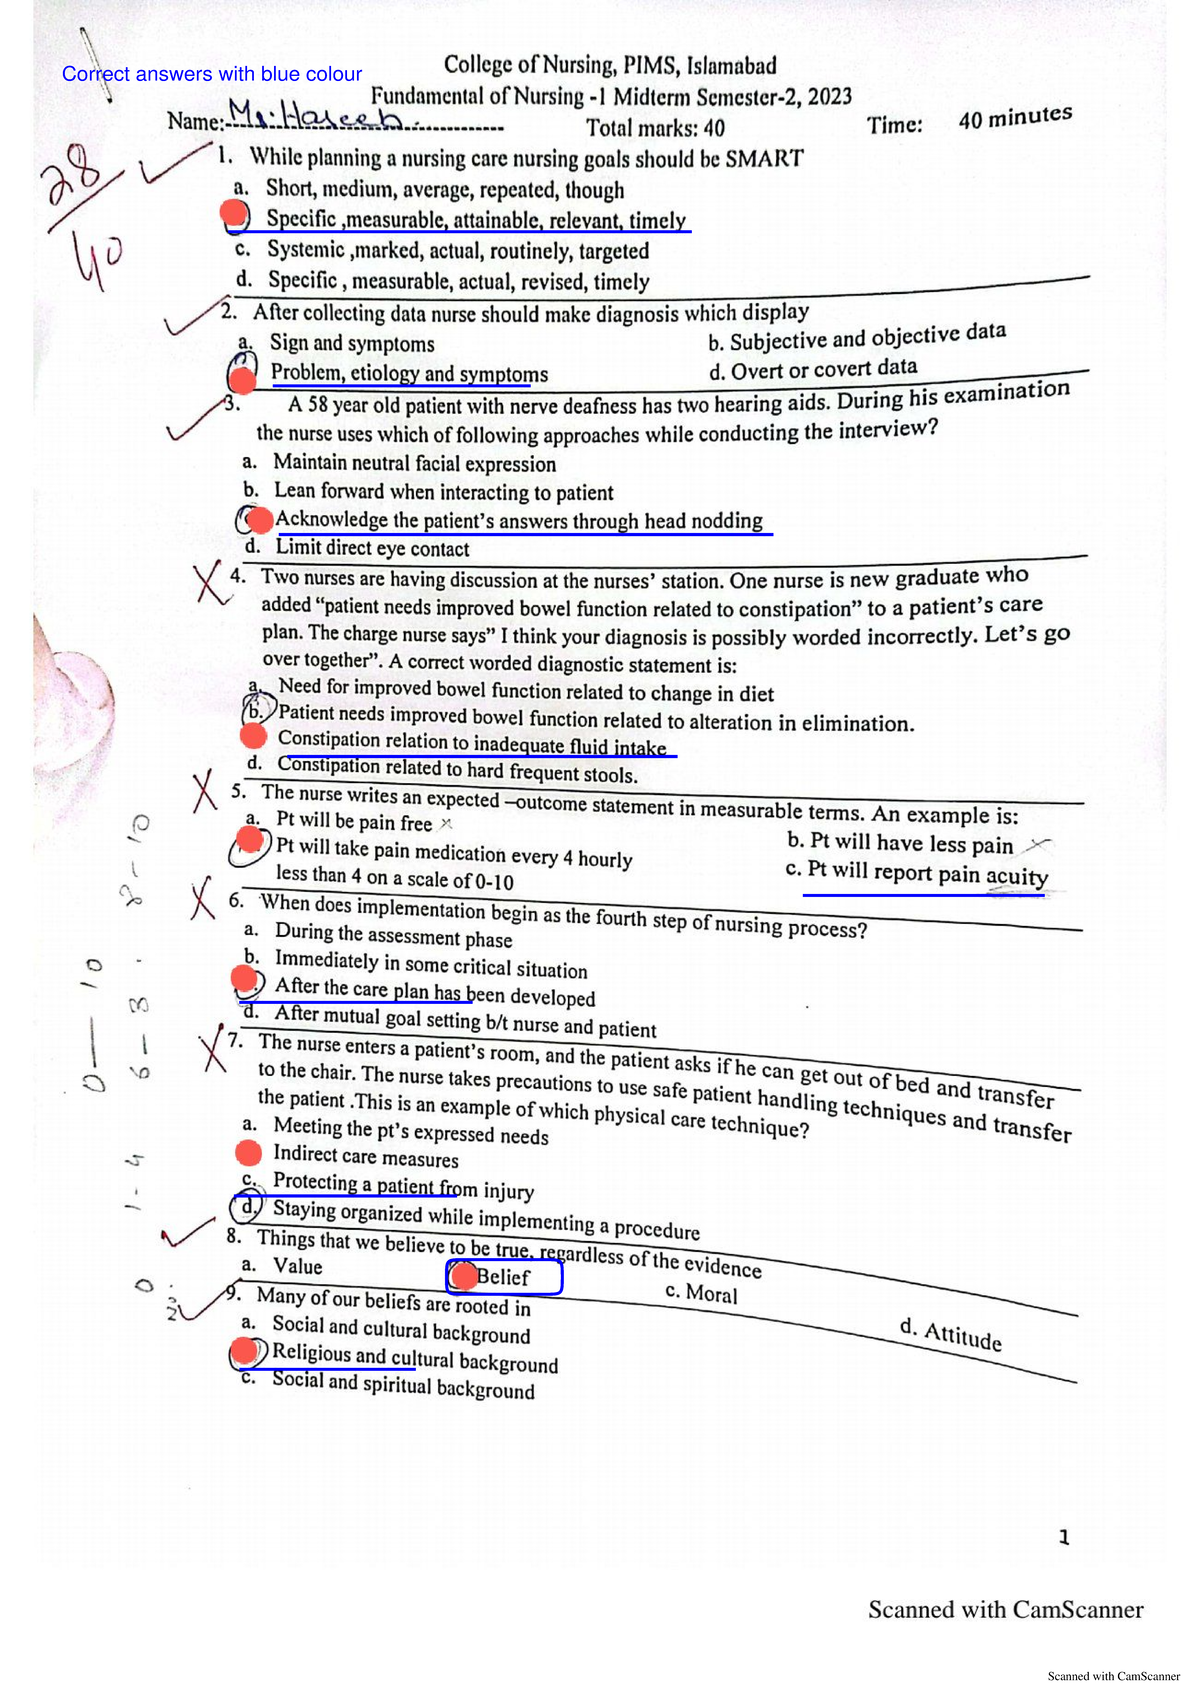 Correct answers with blue colour
College of Nursing, PIMS, Islamabad
Fundamental of Nursing -1 Midterm Semester-2, 2023
Name: Mr. Haseeb
Total marks: 40
Time: 40 minutes
28/40
1. While planning a nursing care nursing goals should be SMART
a. Short, medium, average, repeated, though
Specific ,measurable, attainable, relevant, timely
c. Systemic ,marked, actual, routinely, targeted
d. Specific , measurable, actual, revised, timely
2. After collecting data nurse should make diagnosis which display
a. Sign and symptoms b. Subjective and objective data
Problem, etiology and symptoms d. Overt or covert data
3. A 58 year old patient with nerve deafness has two hearing aids. During his examination
the nurse uses which of following approaches while conducting the interview?
a. Maintain neutral facial expression
b. Lean forward when interacting to patient
Acknowledge the patient's answers through head nodding
d. Limit direct eye contact
4. Two nurses are having discussion at the nurses' station. One nurse is new graduate who
added "patient needs improved bowel function related to constipation" to a patient's care
plan. The charge nurse says" I think your diagnosis is possibly worded incorrectly. Let's go
over together". A correct worded diagnostic statement is:
a. Need for improved bowel function related to change in diet
b. Patient needs improved bowel function related to alteration in elimination.
Constipation relation to inadequate fluid intake
d. Constipation related to hard frequent stools.
5. The nurse writes an expected –outcome statement in measurable terms. An example is:
a. Pt will be pain free b. Pt will have less pain
Pt will take pain medication every 4 hourly c. Pt will report pain acuity
less than 4 on a scale of 0-10
6. When does implementation begin as the fourth step of nursing process?
a. During the assessment phase
b. Immediately in some critical situation
After the care plan has been developed
d. After mutual goal setting b/t nurse and patient
7. The nurse enters a patient's room, and the patient asks if he can get out of bed and transfer
to the chair. The nurse takes precautions to use safe patient handling techniques and transfer
the patient .This is an example of which physical care technique?
a. Meeting the pt's expressed needs
Indirect care measures
c. Protecting a patient from injury
d. Staying organized while implementing a procedure
8. Things that we believe to be true, regardless of the evidence
a. Value Belief c. Moral d. Attitude
9. Many of our beliefs are rooted in
a. Social and cultural background
Religious and cultural background
c. Social and spiritual background
0 — 10
0 1 - 4 6 — 3 . 2 - 10
1
Scanned with CamScanner
Scanned with CamScanner